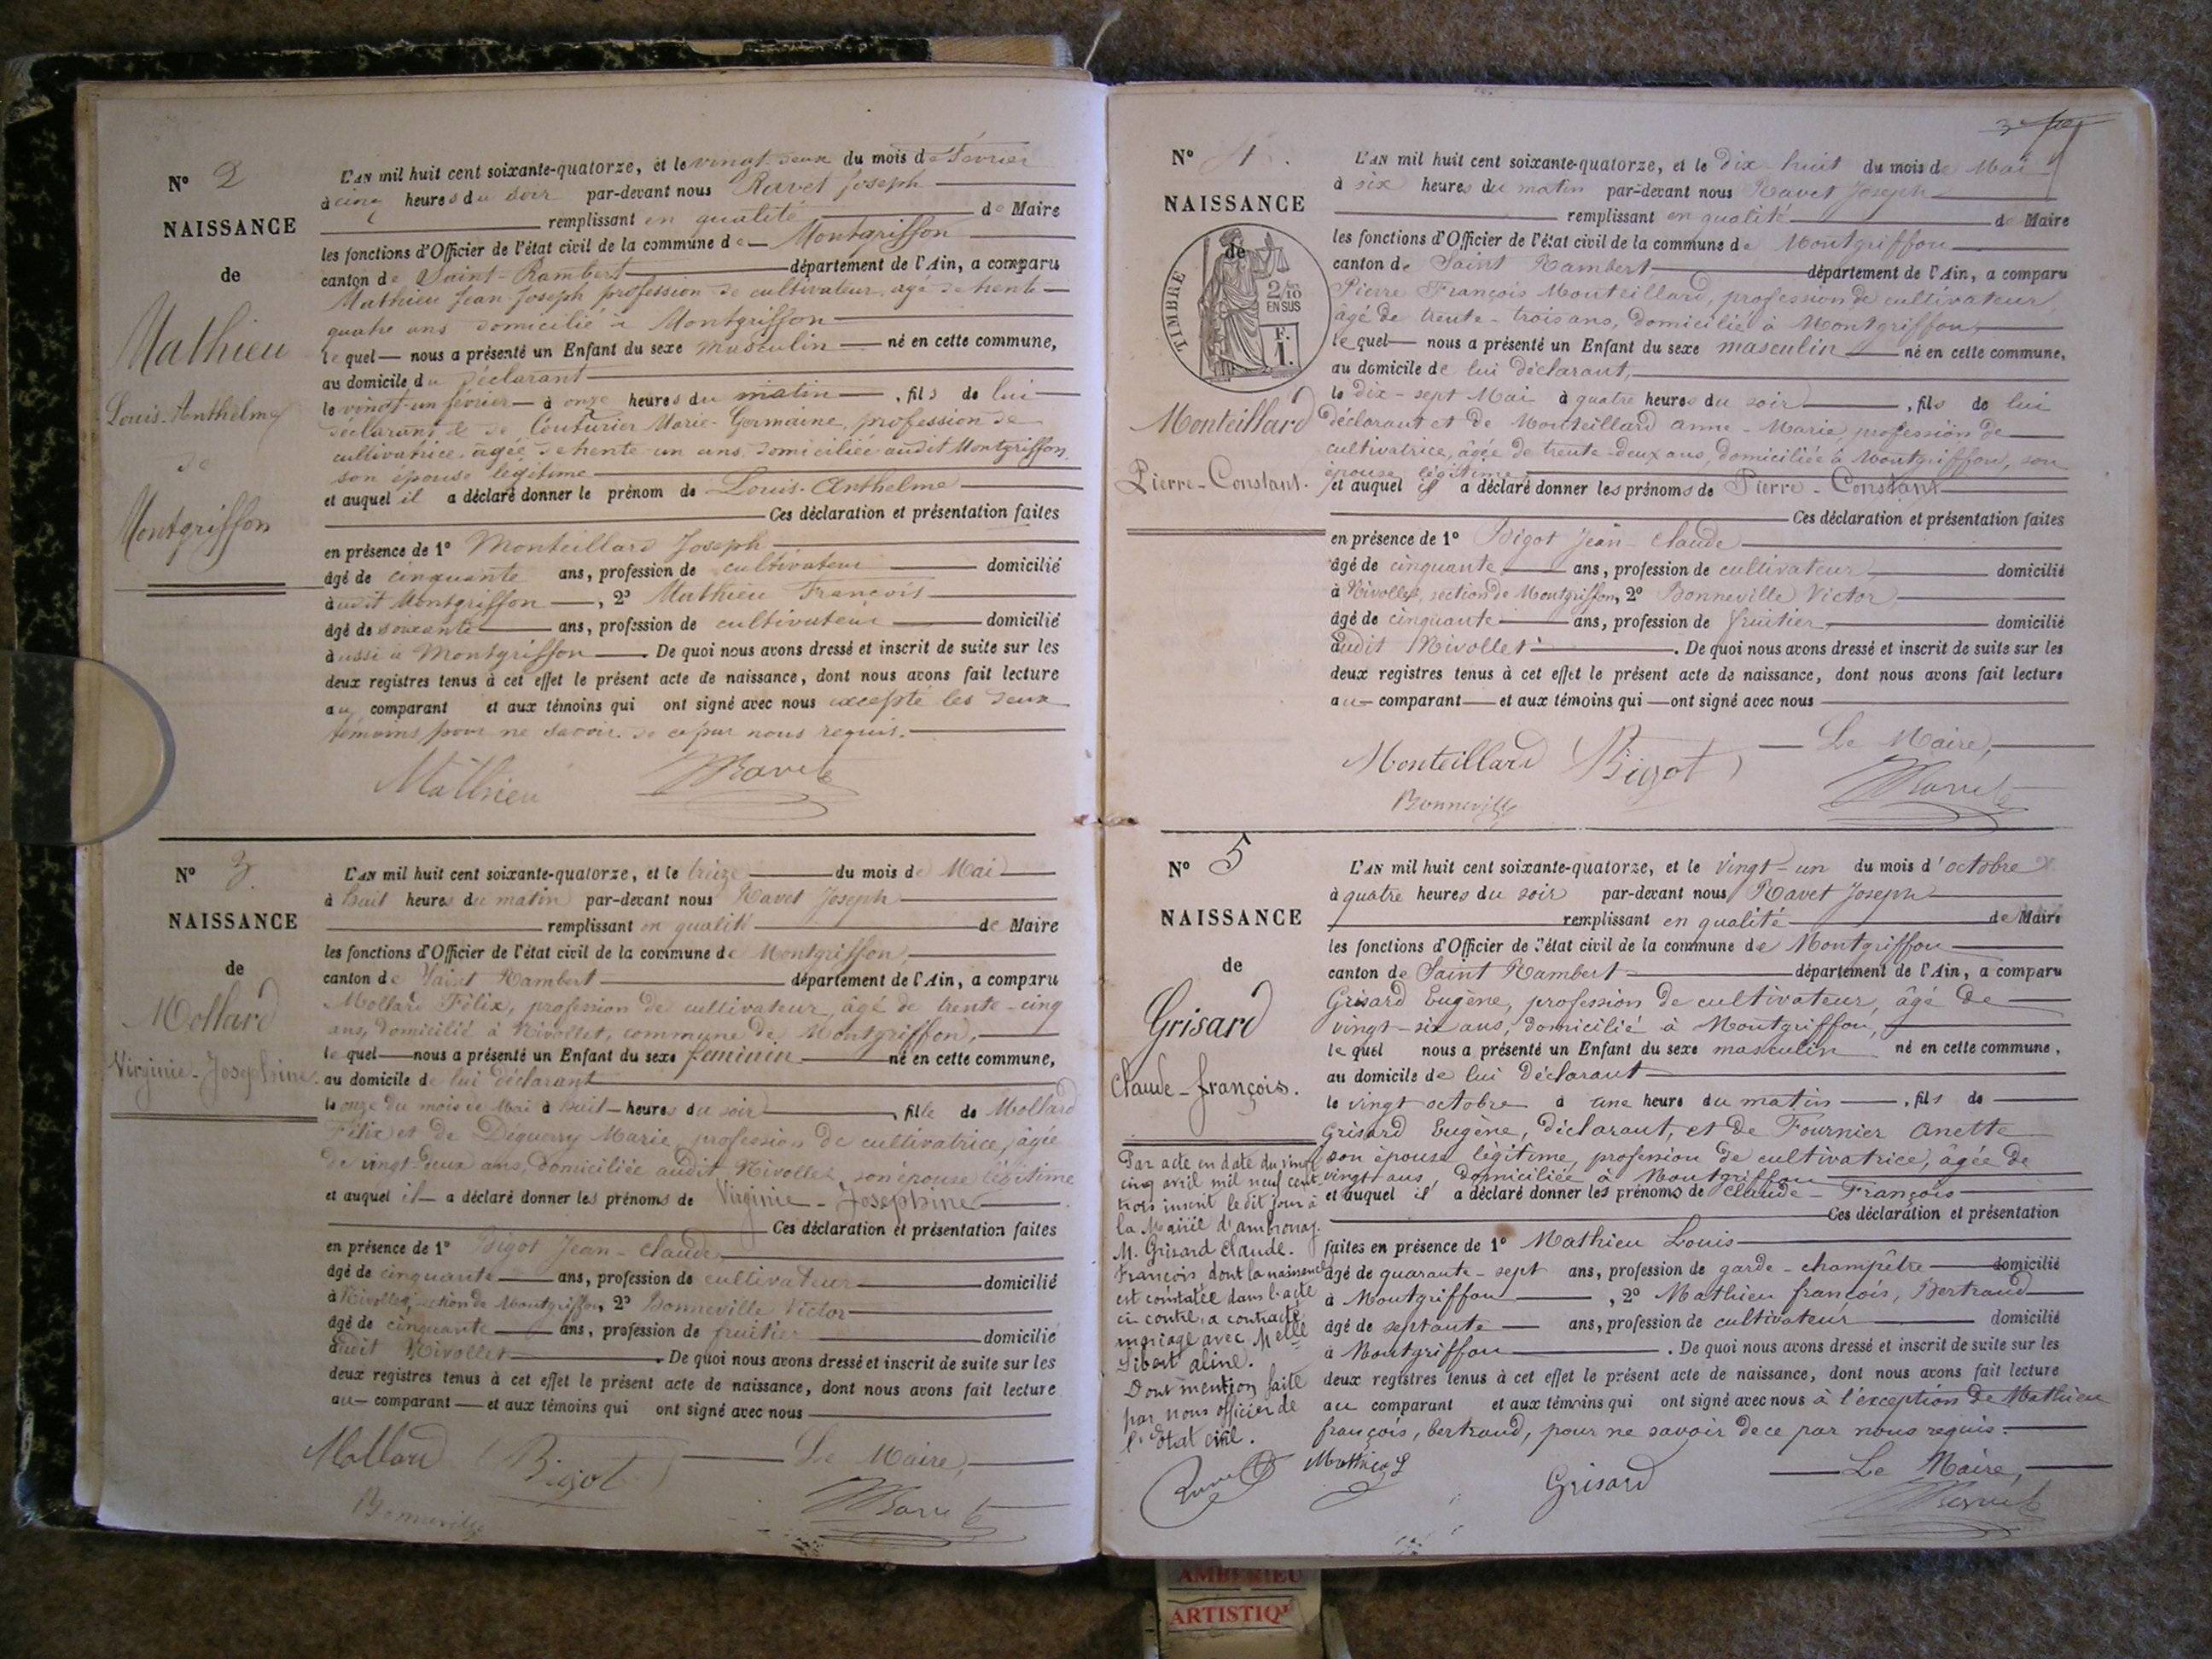 N° 2
NAISSANCE
de
Mathieu
Louis-Anthelme
de
Montgriffon
L'AN mil huit cent soixante-quatorze, et le vingt-deux du mois de Février
à cinq heures du soir par-devant nous Ravet Joseph
remplissant en qualité de Maire
les fonctions d'Officier de l'état civil de la commune de Montgriffon
canton de Saint-Rambert département de l'Ain, a comparu
Mathieu Jean-Joseph profession de cultivateur, âgé de trente-
quatre ans domicilié à Montgriffon
lequel nous a présenté un Enfant du sexe masculin né en cette commune,
au domicile du déclarant
le vingt-un février à onze heures du matin, fils de lui
déclarant et de Couturier Marie-Germaine, profession de
cultivatrice, âgée de trente-un ans, domiciliée audit Montgriffon,
son épouse légitime
et auquel il a déclaré donner le prénom de Louis-Anthelme
Ces déclaration et présentation faites
en présence de 1° Monteillard Joseph
âgé de cinquante ans, profession de cultivateur domicilié
audit Montgriffon, 2° Mathieu François
âgé de soixante ans, profession de cultivateur domicilié
aussi à Montgriffon. De quoi nous avons dressé et inscrit de suite sur les
deux registres tenus à cet effet le présent acte de naissance, dont nous avons fait lecture
au comparant et aux témoins qui ont signé avec nous excepté les deux
témoins pour ne savoir de ce par nous requis.
Mathieu Ravet
N° 3
NAISSANCE
de
Mollard
Virginie-Josephine.
L'AN mil huit cent soixante-quatorze, et le treize du mois de Mai
à huit heures du matin par-devant nous Ravet Joseph
remplissant en qualité de Maire
les fonctions d'Officier de l'état civil de la commune de Montgriffon,
canton de Saint Rambert département de l'Ain, a comparu
Mollard Félix, profession de cultivateur, âgé de trente-cinq
ans, domicilié à Nivollet, commune de Montgriffon,
lequel nous a présenté un Enfant du sexe féminin né en cette commune,
au domicile de lui déclarant
le onze du mois de Mai à huit heures du soir, fille de Mollard
Félix et de Déguerry Marie, profession de cultivatrice, âgée
de vingt-deux ans, domiciliée audit Nivollet, son épouse légitime
et auquel il a déclaré donner les prénoms de Virginie-Josephine
Ces déclaration et présentation faites
en présence de 1° Bigot Jean-Claude
âgé de cinquante ans, profession de cultivateur domicilié
à Nivollet, section de Montgriffon, 2° Bonneville Victor
âgé de cinquante ans, profession de fruitier domicilié
audit Nivollet. De quoi nous avons dressé et inscrit de suite sur les
deux registres tenus à cet effet le présent acte de naissance, dont nous avons fait lecture
au comparant et aux témoins qui ont signé avec nous
Mollard Bigot Le Maire,
Bonneville Ravet
N° 4.
NAISSANCE
de
TIMBRE
2/10
EN SUS
F.
1.
Monteillard
Pierre-Constant.
L'AN mil huit cent soixante-quatorze, et le dix-huit du mois de Mai
à six heures du matin par-devant nous Ravet Joseph
remplissant en qualité de Maire
les fonctions d'Officier de l'état civil de la commune de Montgriffon
canton de Saint Rambert département de l'Ain, a comparu
Pierre François Monteillard, profession de cultivateur
âgé de trente-trois ans, domicilié à Montgriffon,
lequel nous a présenté un Enfant du sexe masculin né en cette commune,
au domicile de lui déclarant,
le dix-sept Mai à quatre heures du soir, fils de lui
déclarant et de Monteillard Anne-Marie, profession de
cultivatrice, âgée de trente-deux ans, domiciliée à Montgriffon, son
épouse légitime
et auquel il a déclaré donner les prénoms de Pierre-Constant
Ces déclaration et présentation faites
en présence de 1° Bigot Jean-Claude
âgé de cinquante ans, profession de cultivateur domicilié
à Nivollet, section de Montgriffon, 2° Bonneville Victor
âgé de cinquante ans, profession de fruitier domicilié
audit Nivollet. De quoi nous avons dressé et inscrit de suite sur les
deux registres tenus à cet effet le présent acte de naissance, dont nous avons fait lecture
au comparant et aux témoins qui ont signé avec nous
Monteillard Bigot Le Maire,
Bonneville Ravet
N° 5
NAISSANCE
de
Grisard
Claude-François.
Par acte en date du vingt
cinq avril mil neuf cent
trois inscrit ledit jour à
la Mairie d'Ambronay.
M. Grisard Claude.
François dont la naissance
est constatée dans l'acte
ci contre, a contracté
mariage avec Melle
Sibert Aline.
Dont mention faite
par nous officier de
l'état civil.
L'AN mil huit cent soixante-quatorze, et le vingt-un du mois d'octobre
à quatre heures du soir par-devant nous Ravet Joseph
remplissant en qualité de Maire
les fonctions d'Officier de l'état civil de la commune de Montgriffon
canton de Saint Rambert département de l'Ain, a comparu
Grisard Eugène, profession de cultivateur, âgé de
vingt-six ans, domicilié à Montgriffon,
lequel nous a présenté un Enfant du sexe masculin né en cette commune,
au domicile de lui déclarant
le vingt octobre à une heure du matin, fils de
Grisard Eugène, déclarant, et de Fournier Anette
son épouse légitime, profession de cultivatrice, âgée de
vingt ans, domiciliée à Montgriffon
et auquel il a déclaré donner les prénoms de Claude-François
Ces déclaration et présentation
faites en présence de 1° Mathieu Louis
âgé de quarante-sept ans, profession de garde-champêtre domicilié
à Montgriffon, 2° Mathieu françois, Bertrand
âgé de septante ans, profession de cultivateur domicilié
à Montgriffon. De quoi nous avons dressé et inscrit de suite sur les
deux registres tenus à cet effet le présent acte de naissance, dont nous avons fait lecture
au comparant et aux témoins qui ont signé avec nous à l'exception de Mathieu
françois, bertrand, pour ne savoir de ce par nous requis.
Mathieu L Grisard Le Maire,
Ravet
AMBERIEU
ARTISTIQ